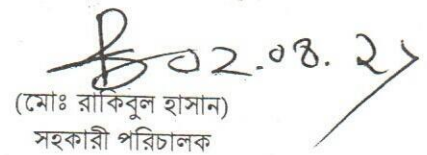 ০২.০৪.২১
(মোঃ রাকিবুল হাসান)
সহকারী পরিচালক